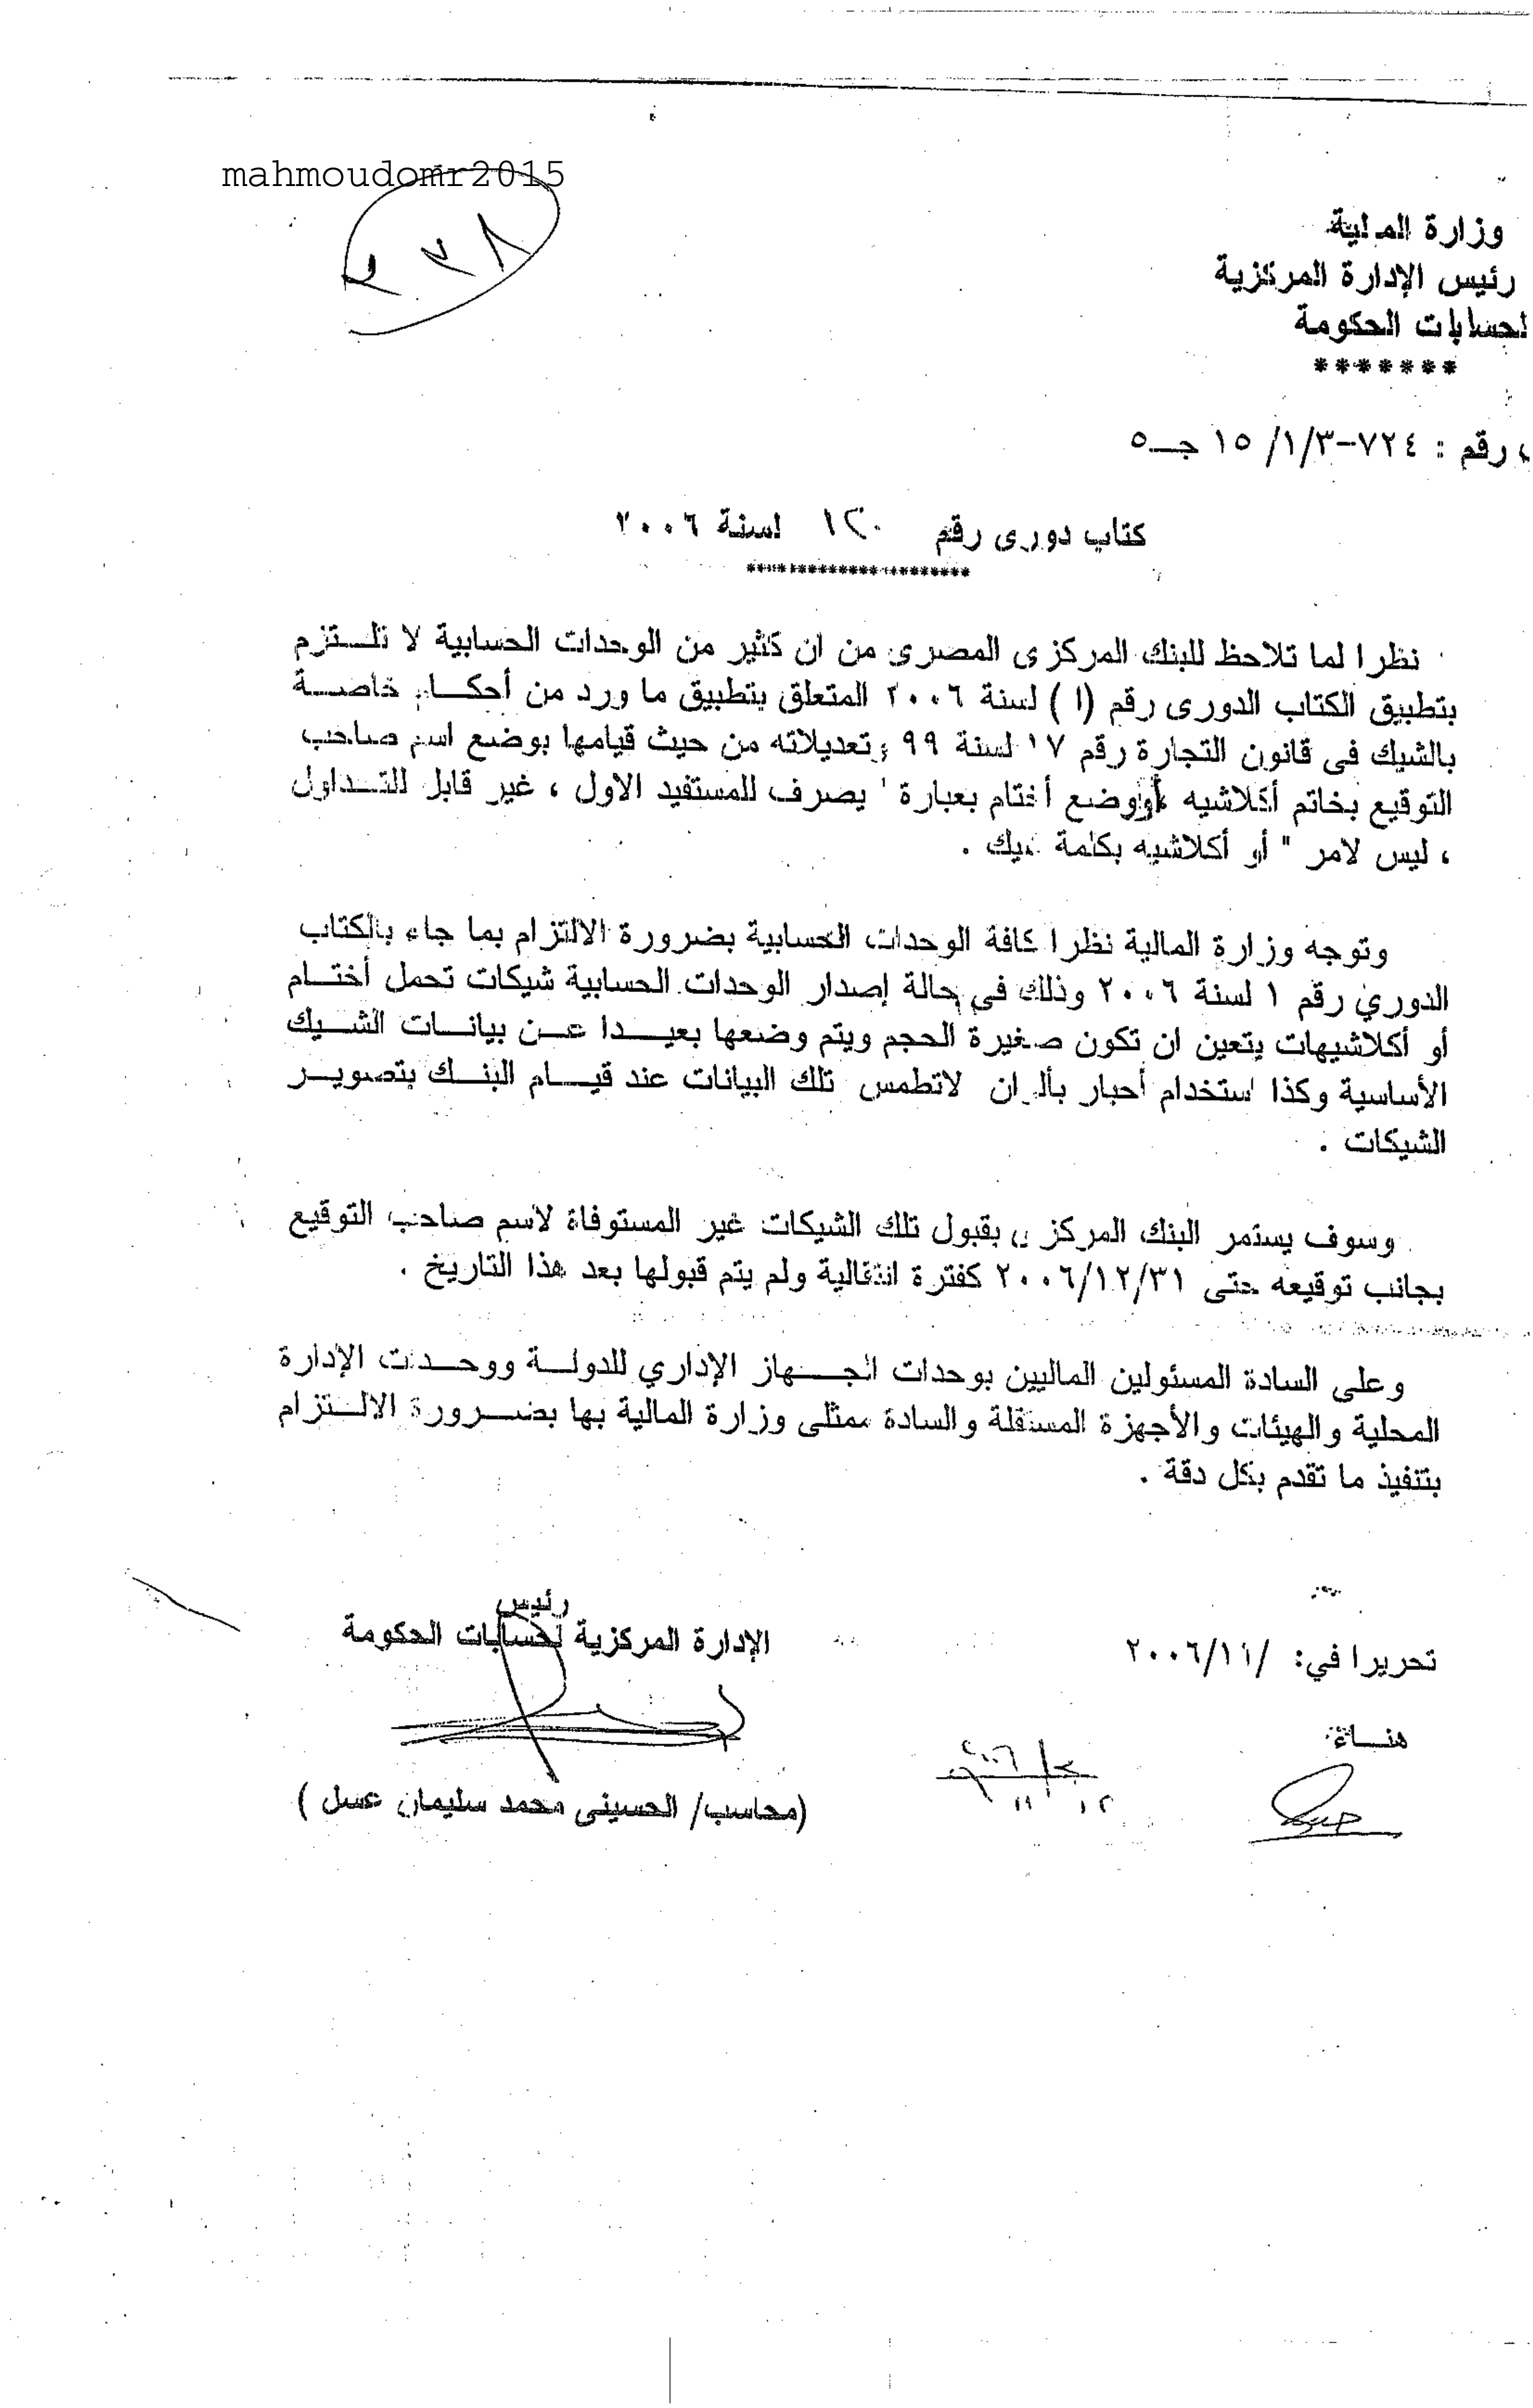 mahmoudomr2015
٢٣٨
وزارة المالية
رئيس الإدارة المركزية
لحسابات الحكومة
*******
رقم : ٧٢٤-١/٣/ ١٥ جـ٥
كتاب دورى رقم ١٢٠ لسنة ٢٠٠٦
********************
نظرا لما تلاحظ للبنك المركزى المصرى من ان كثير من الوحدات الحسابية لا تلـــتزم
بتطبيق الكتاب الدورى رقم (١) لسنة ٢٠٠٦ المتعلق بتطبيق ما ورد من أحكـــام خاصـــة
بالشيك فى قانون التجارة رقم ١٧ لسنة ٩٩ وتعديلاته من حيث قيامها بوضع اسم صاحب
التوقيع بخاتم أكلاشيه أووضع أختام بعبارة " يصرف للمستفيد الاول ، غير قابل للتــداول
، ليس لامر " أو أكلاشيه بكلمة شيك .
وتوجه وزارة المالية نظرا كافة الوحدات الحسابية بضرورة الالتزام بما جاء بالكتاب
الدوري رقم ١ لسنة ٢٠٠٦ وذلك فى حالة إصدار الوحدات الحسابية شيكات تحمل أختـــام
أو أكلاشيهات يتعين ان تكون صغيرة الحجم ويتم وضعها بعيـــدا عـــن بيانـــات الشـــيك
الأساسية وكذا استخدام أحبار بألوان لاتطمس تلك البيانات عند قيـــام البنـــك بتصويـــر
الشيكات .
وسوف يستمر البنك المركزى بقبول تلك الشيكات غير المستوفاة لاسم صاحب التوقيع
بجانب توقيعه حتى ٢٠٠٦/١٢/٣١ كفترة انتقالية ولم يتم قبولها بعد هذا التاريخ .
وعلى السادة المسئولين الماليين بوحدات الجـــهاز الإداري للدولـــة ووحـــدات الإدارة
المحلية والهيئات والأجهزة المستقلة والسادة ممثلى وزارة المالية بها بضـــرورة الالـــتزام
بتنفيذ ما تقدم بكل دقة .
رئيس
الإدارة المركزية لحسابات الحكومة
تحريرا في: /٢٠٠٦/١١
هنـــاء
(محاسب/ الحسينى محمد سليمان عسل )